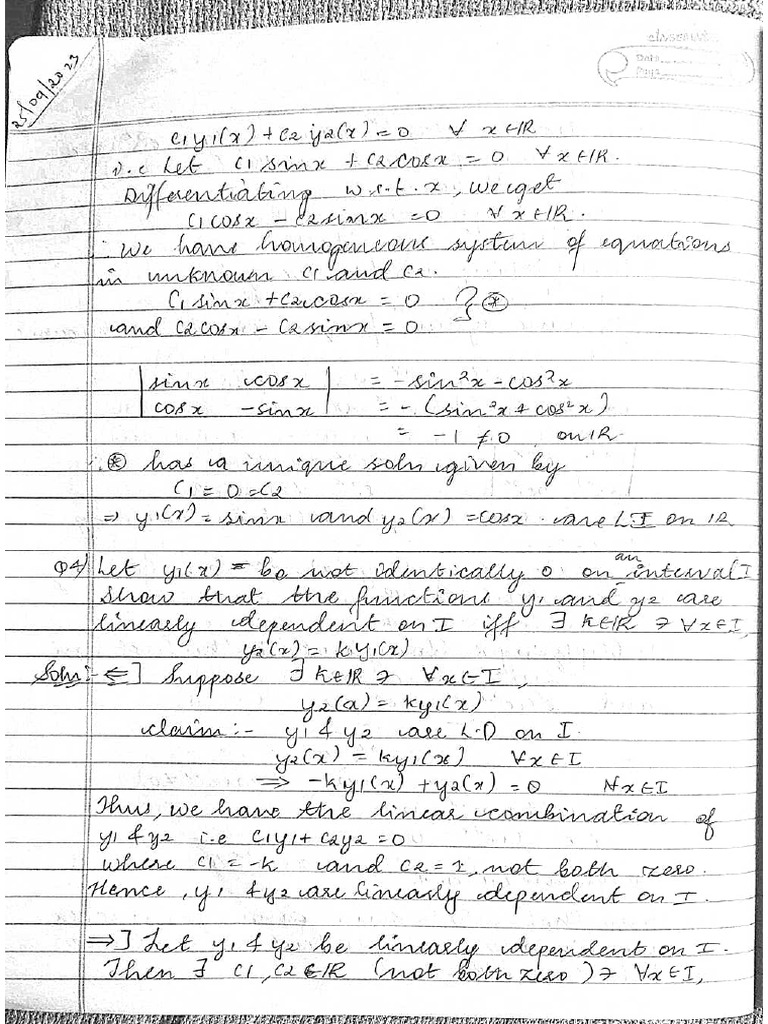 25/09/2023
classmate
Date
Page
c1y1(x) + c2 y2(x) = 0 ∀ x∈IR
i.e Let c1 sinx + c2cosx = 0 ∀ x∈IR.
Differentiating w.r.t. x, we get
c1cosx - c2sinx = 0 ∀ x∈IR.
∴ we have homogeneous system of equations
in unknown c1 and c2.
C1 sinx + c2cosx = 0 } ⊛
and C2cosx - C2sinx = 0
| sinx cosx | = -sin²x - cos²x
| cosx -sinx | = -(sin²x + cos²x)
= -1 ≠ 0 on IR
∴ ⊛ has a unique soln given by
C1 = 0 = C2
⇒ y1(x) = sinx and y2(x) = cosx are LI on IR
Q4) Let y1(x) be not identically 0 on an interval I
show that the functions y1 and y2 are
linearly dependent on I iff ∃ k∈IR ∋ ∀x∈I,
y2(x) = ky1(x)
Soln:- ⇐] Suppose ∃ k∈IR ∋ ∀x∈I,
y2(x) = ky1(x)
claim:- y1 & y2 are L.D on I.
y2(x) = ky1(x) ∀x∈I
⇒ -ky1(x) + y2(x) = 0 ∀x∈I
Thus, we have the linear combination of
y1 & y2 i.e c1y1 + c2y2 = 0
where c1 = -k and c2 = 1, not both zero.
Hence, y1 & y2 are linearly dependent on I.
⇒] Let y1 & y2 be linearly dependent on I.
Then ∃ c1, c2∈IR (not both zero) ∋ ∀x∈I,